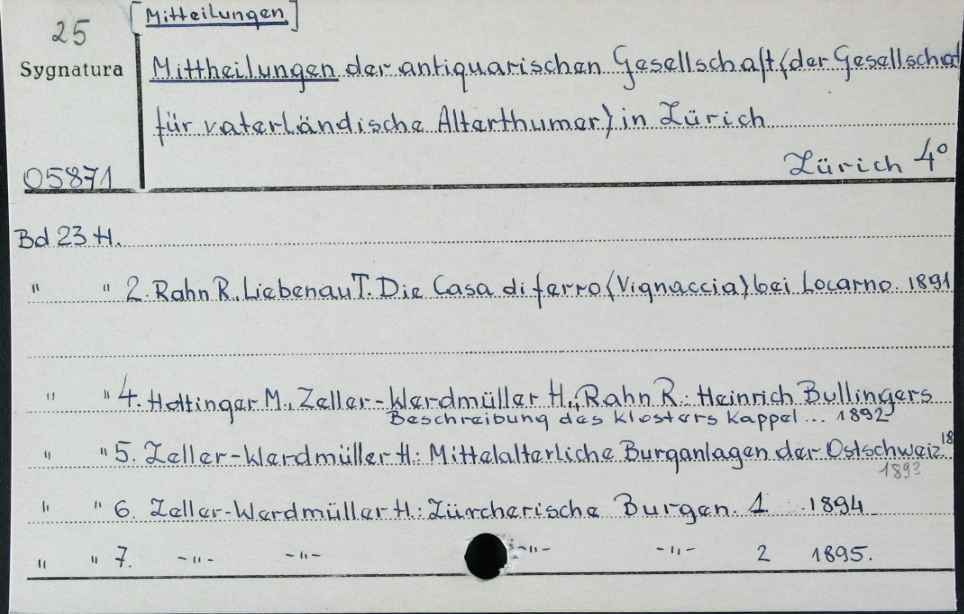 25
[Mitteilungen]
Sygnatura
Mittheilungen der antiquarischen Gesellschaft (der Gesellschaft
für vaterländische Alterthumer) in Zürich
Zürich 4°
05871
Bd 23 H.
" " 2. Rahn R., Liebenau T. Die Casa di ferro (Vignaccia) bei Locarno. 1891
" " 4. Hottinger M., Zeller-Werdmüller H., Rahn R.: Heinrich Bullingers
Beschreibung des Klosters Kappel... 1892
" " 5. Zeller-Werdmüller H.: Mittelalterliche Burganlagen der Ostschweiz. 18
1893
" " 6. Zeller-Werdmüller H.: Zürcherische Burgen. 1 1894
" " 7. -"- -"- -"- -"- 2 1895.